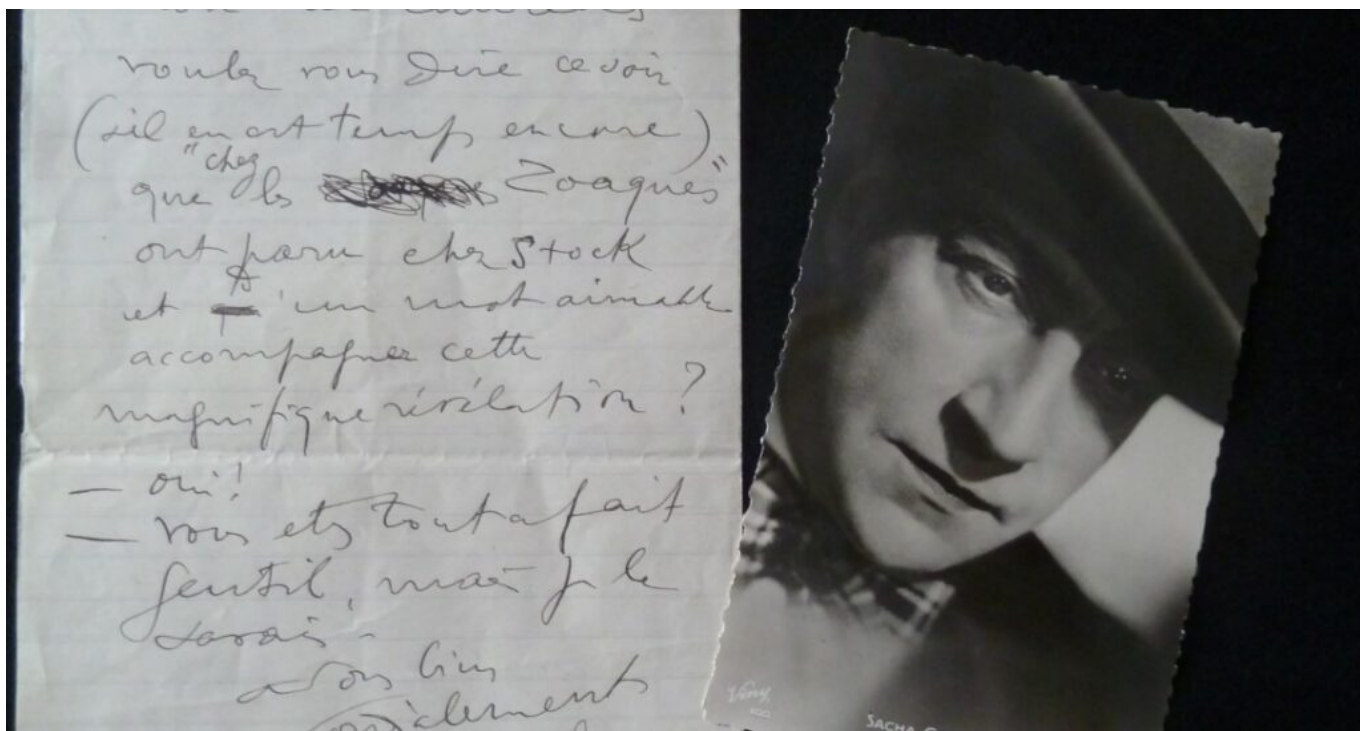 voulez vous dire ce soir
(s'il en est temps encore)
que "chez les Zoaques"
ont paru chez Stock
et d'un mot aimable
accompagner cette
magnifique révélation ?
— oui !
— vous etes tout a fait
gentil, mais je le
savais -
a vous bien
cordialement
Viny
SACHA G